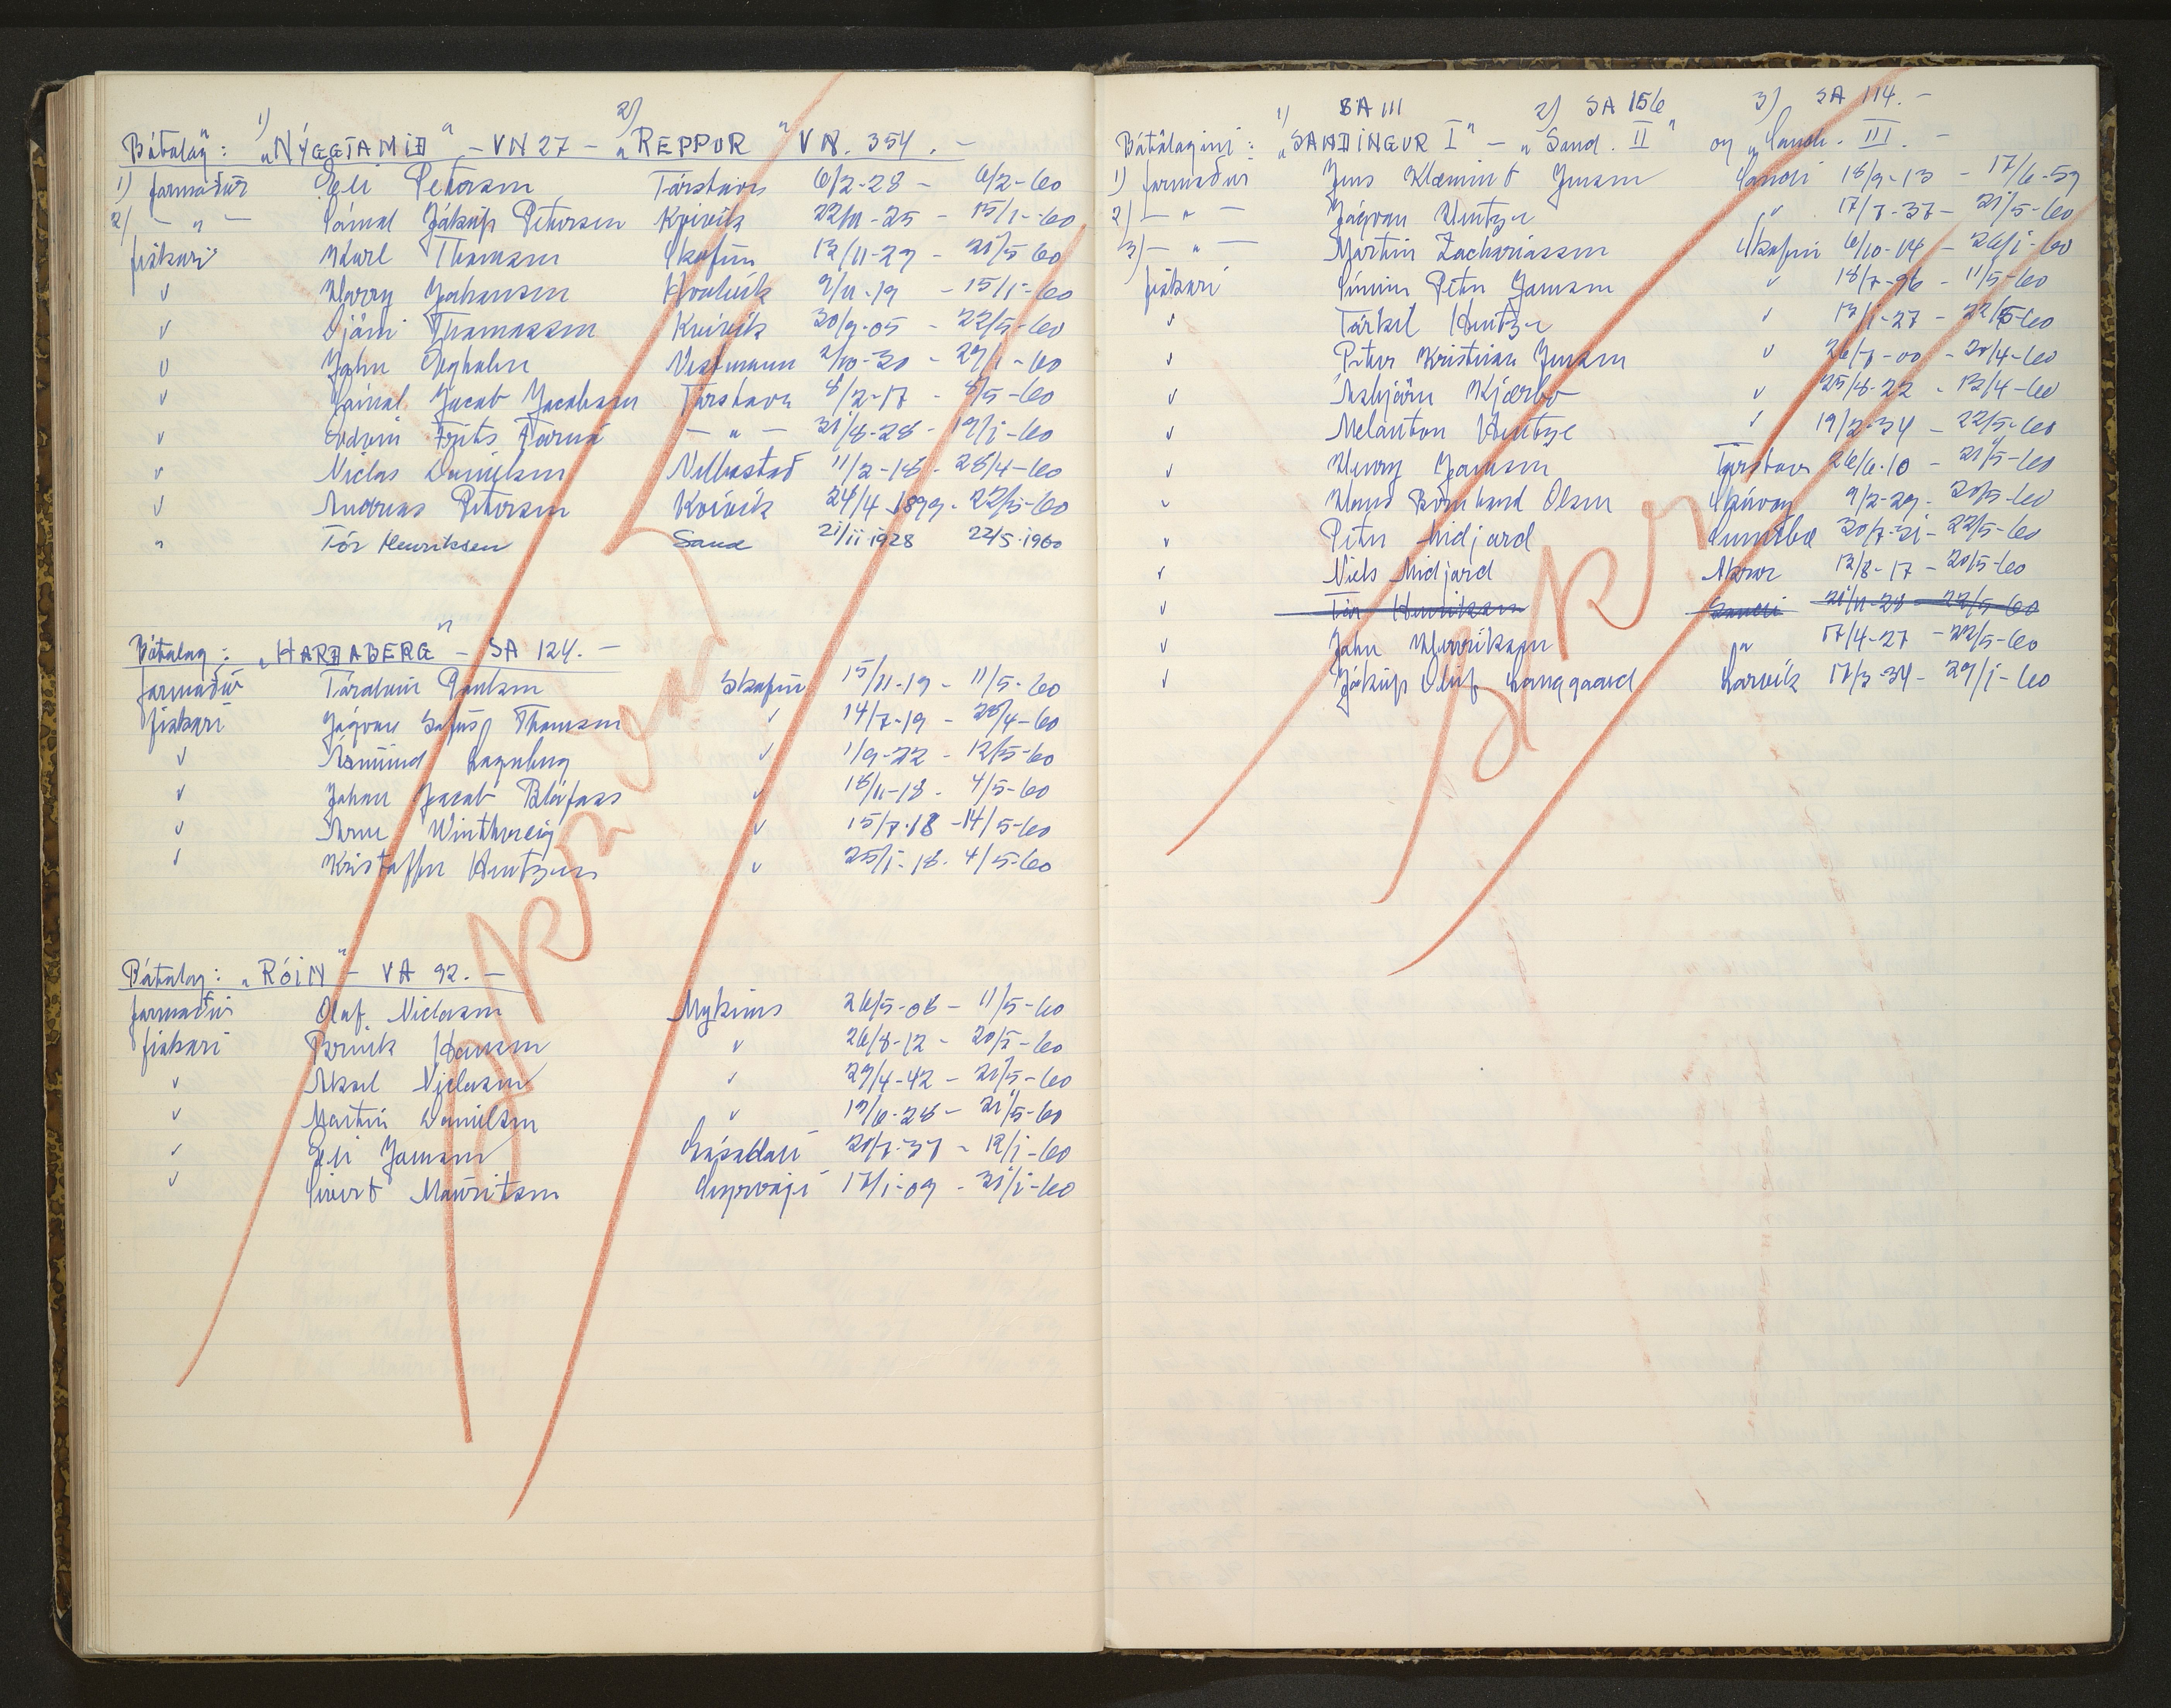 1) 2)
Bátalag: „NÝGGJAMID" – VN 27 – „REPPUR" VN. 354. –
1) formaður Eli Petersen Tórshavn 6/2-28 – 6/2-60
2) – " – Sámal Jákup Petersen Kvívík 22/11-25 – 15/1-60
fiskari Karl Thomsen Skopun 12/11-29 – 21/5-60
✓ Harry Johansen Hvalvík 9/11-19 – 15/1-60
✓ Djóni Thomassen Kvívík 30/9-05 – 22/5-60
✓ John Vestmann 2/10-30 – 29/1-60
✓ Sámal Jacob Jacobsen Tórshavn 8/2-17 – 8/5-60
✓ Edvin Frits – " – 31/8-28 – 19/1-60
✓ Niclas Danielsen Velbastað 11/2-18 – 28/4-60
✓ Andreas Petersen Kvívík 24/4-1899 – 22/5-60
" Tór Henriksen Sand 21/11-1928 22/5-1960
Bátalag: „HARDABERG" – SA 124. –
formaður Poulsen Skopun 15/11-19 – 11/5-60
fiskari Jógvan Thomsen ✓ 14/7-19 – 28/4-60
✓ Ásmund ✓ 1/9-22 – 12/5-60
✓ Johan Jacob Bláfoss ✓ 18/11-18 – 4/5-60
✓ Arne Wintherei ✓ 15/7-18 – 14/5-60
✓ Kristoffur Hentzen ✓ 25/1-18 – 4/5-60
Bátalag: „RÓIN" – VA 92. –
formaður Olaf Niclasen Mykines 26/5-06 – 11/5-60
fiskari Hansen ✓ 26/8-12 – 20/5-60
✓ Aksel Niclasen ✓ 29/4-42 – 21/5-60
✓ Martin Danielsen ✓ 19/6-28 – 21/5-60
✓ Eli Joensen Gásadali 12/1-60
✓ Sivert Mouritsen Sørvági 17/1-09 – 31/1-60
1) SA 111 2) SA 156 3) SA 114. –
Bátalagini: „SANDINGUR I" – „Sand. II" og „Sand. III. –
1) formaður Jens Klæmint Jensen Sandi 18/9-13 – 17/6-59
2) – " – Jógvan Hentze " 17/7-37 – 21/5-60
3) – " – Martin Zachariassen Skopun 6/10-14 – 26/1-60
fiskari Símin Petur Joensen ✓ 18/7-96 – 11/5-60
✓ Tórkil Hentze ✓ 13/1-27 – 22/5-60
✓ Petur Kristian Jensen ✓ 26/7-00 – 20/4-60
✓ Asbjørn Kjærbo ✓ 25/8-22 – 13/4-60
✓ Melanton Hentze ✓ 19/2-34 – 22/5-60
✓ Henry Joensen Tórshavn 26/6-10 – 21/5-60
✓ Hans Bernhard Olsen Skúvoy 9/2-29 – 20/5-60
✓ Petur Midjord Sumba 30/7-31 – 22/5-60
✓ Niels Midjord Akrar 13/8-17 – 20/5-60
✓ Tór Henriksen Sandi 21/11-28 – 22/5-60
✓ John Henriksen " 17/4-27 – 22/5-60
✓ Jákup Oluf Langgaard Lorvík 17/3-34 – 29/1-60